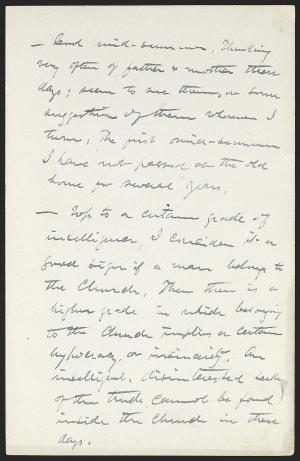 — Land mid-summer, Thinking
very often of father & mother these
days; seem to see them, or some
suggestion of them wherever I
turn; The first mid-summer
I have not passed at the old
home for several years.
— Up to a certain grade of
intelligence, I consider it a
good sign if a man belongs to
the Church, Then there is a
higher grade in which belonging
to the Church implies a certain
hypocracy, or insincerity. An
intelligent, disinterested seeker
of the truth cannot be found
inside the Church in these
days.